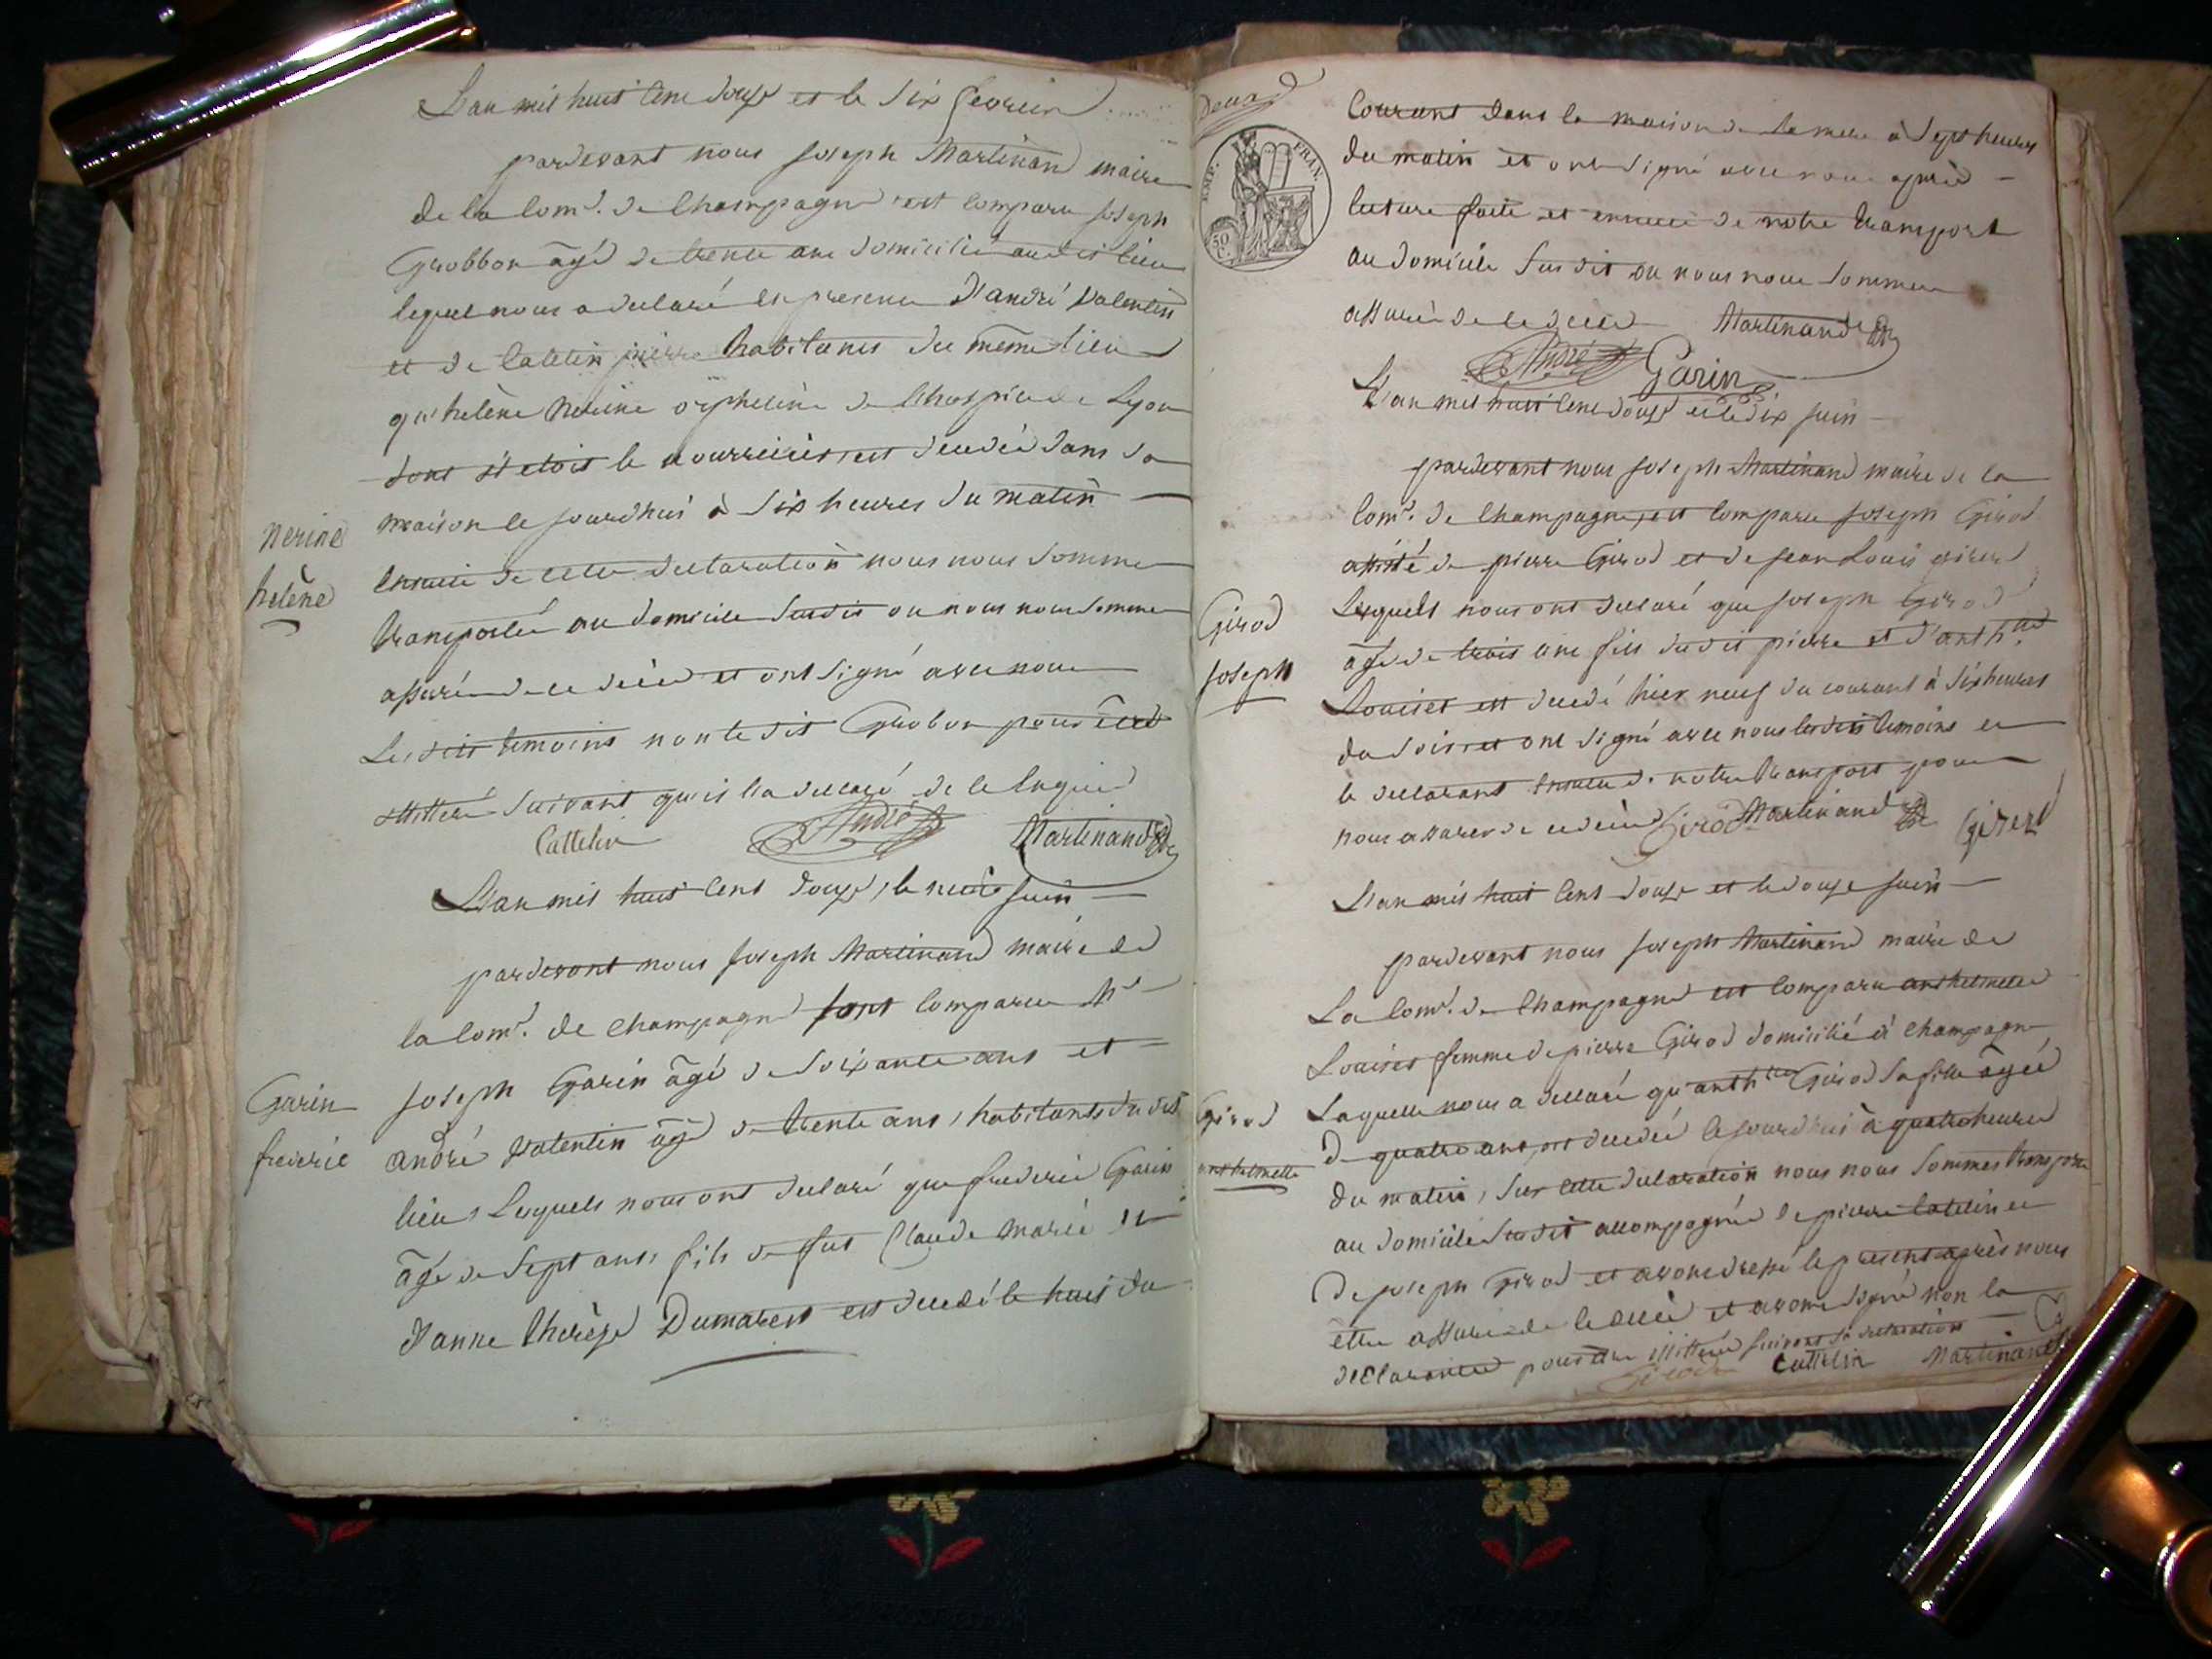 L'an mil huit cent douze et le six fevrier
pardevant nous joseph Martinand maire
de la com.e de Champagne est comparu joseph
Grobbon âgé de trente ans domicilié audit lieu
lequel nous a declaré en presence d'andré Valentin
et de Cattelin pierre habitants du même lieu
qu'helène Nerine orpheline de l'hospice de Lyon
dont il etoit le nourricier est decedée dans sa
maison le jourdhui à six heures du matin
ensuite de cette declaration nous nous sommes
nerine
helène
transportés au domicile susdit ou nous nous sommes
assurés de ce décès et ont signé avec nous
Les dits temoins non ledit Grobon pour être
illitteré suivant qu'il l'a declaré de ce enquis
Cattelin André Martinand
L'an mil huit cent douze, le neuf juin
pardevant nous joseph Martinand maire de
la com.e de Champagne sont comparus Mr
joseph Garin âgé de soixante ans et
Garin
frederic
andré Valentin âgé de trente ans, habitants du dit
lieu, Lesquels nous ont declaré que frederic Garin
âgé de sept ans, fils de fut Claude Marie et
d'anne therèse Dumarest est decedé le huit du
Deux
EMP. FRAN.
50 C.
courant dans la maison de sa mere à sept heures
du matin et ont signé avec nous après
lecture faite et ensuite de notre transport
au domicile susdit ou nous nous sommes
assurés de ce décès Martinand
André Garin
L'an mil huit cent douze et le dix juin
pardevant nous joseph Martinand maire de la
com.e de Champagne, est comparu joseph Girod
assisté de pierre Girod et de jean Louis girerd
Lesquels nous ont declaré que joseph Girod
Girod
joseph
âgé de trois ans fils dudit pierre et d'anth.me
Louiset est decedé hier neuf du courant à six heures
du soir et ont signé avec nous les dits temoins et
le declarant ensuite de notre transport pour
nous assurer de ce décès Girod Martinand Girerd
L'an mil huit cent douze et le douze juin
pardevant nous joseph Martinand maire de
La com.e de Champagne est comparu anthelmette
Louiset femme de pierre Girod domicilié à Champagne
Laquelle nous a declaré qu'anth.tte Girod sa fille âgée
Girod
anthelmette
de quatre ans, est decedée le jourdhui à quatre heures
du matin, sur cette declaration nous nous sommes transporté
au domicile susdit accompagné de pierre Cattelin et
de joseph Girod et avons dressé le present après nous
être assuré de ce décès et avons signé non la
declarante pour être illitterée suivant sa declaration
Girod Cattelin Martinand